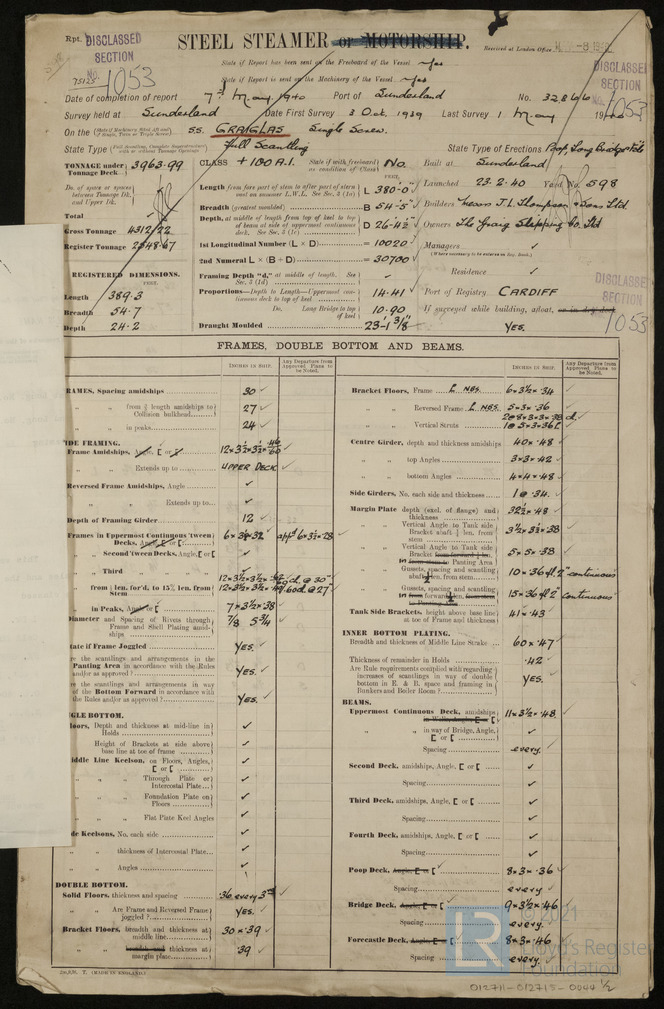 Rpt.
DISCLASSED
SECTION
No.
1053
75125
STEEL STEAMER or MOTORSHIP.
Received at London Office
State if Report has been sent on the Freeboard of the Vessel
State if Report is sent on the Machinery of the Vessel
DISCLASSED
SECTION
1053
Date of completion of report 7th May 1940 Port of Sunderland No. 32866
Survey held at Sunderland Date First Survey 3 Oct. 1939 Last Survey 1 May 19
On the SS. GRAIGLAS Single Screw.
State Type Full Scantling State Type of Erections Poop, Long Bridge & Fcle
TONNAGE under Tonnage Deck 3963.99
Do. of space or spaces between Tonnage Dk. and Upper Dk.
Total
Gross Tonnage 4312.22
Register Tonnage 2548.67
REGISTERED DIMENSIONS.
FEET.
Length 389.3
Breadth 54.7
Depth 24.2
CLASS +100 A.I. State if with freeboard as condition of Class No.
FEET.
Length from fore part of stem to after part of stern post on summer L.W.L. See Sec. 3 (1a) L 380'-0"
Breadth (greatest moulded) B 54'-5"
Depth, at middle of length from top of keel to top of beam at side of uppermost continuous deck. See Sec. 3 (1c) D 26'-4½"
1st Longitudinal Number (L × D) = 10020
2nd Numeral L × (B + D) = 30700
Framing Depth "d," at middle of length. See Sec. 3 (1d)
Proportions—Depth to Length—Uppermost continuous deck to top of keel 14.41
Do. Long Bridge to top of keel 10.90
Draught Moulded 23'-1⅜"
Built at Sunderland
Launched 23.2.40 Yard No. 598
Builders Messrs J.L. Thompson & Sons Ltd
Owners The Graig Shipping Co. Ltd
Managers
(Where necessary to be entered in Reg. Book.)
Residence
Port of Registry CARDIFF
If surveyed while building, afloat, or in dry dock
YES.
DISCLASSED
SECTION
1053
FRAMES, DOUBLE BOTTOM AND BEAMS.
INCHES IN SHIP.
Any Departure from Approved Plans to be Noted.
INCHES IN SHIP.
Any Departure from Approved Plans to be Noted.
RAMES, Spacing amidships 30
" " from ⅗ length amidships to Collision bulkhead 27
" " in peaks 24
IDE FRAMING.
Frame Amidships, Angle, [ or
" " Extends up to UPPER DECK
Reversed Frame Amidships, Angle
" " Extends up to
Depth of Framing Girder 12
Frames in Uppermost Continuous Tween Decks, Angle, [ or [
" Second Tween Decks, Angle, [ or [
" Third "
" from ⅗ len. for'd. to 15% len. from Stem
" in Peaks, Angle or [ 7 × 3½ × .38
Diameter and Spacing of Rivets through Frame and Shell Plating amidships 7/8 5¾
tate if Frame Joggled YES.
re the scantlings and arrangements in the Panting Area in accordance with the Rules and/or as approved? YES.
re the scantlings and arrangements in way of the Bottom Forward in accordance with the Rules and/or as approved? YES.
NGLE BOTTOM.
loors, Depth and thickness at mid-line in Holds
Height of Brackets at side above base line at toe of frame
iddle Line Keelson, on Floors, Angles, [ or [
" " Through Plate or Intercostal Plate
" " Foundation Plate on Floors
" " Flat Plate Keel Angles
de Keelsons, No. each side
" " thickness of Intercostal Plate
" " Angles
DOUBLE BOTTOM.
Solid Floors, thickness and spacing .36 every 3rd
" " Are Frame and Reversed Frame joggled? YES.
Bracket Floors, breadth and thickness at middle line 30 × .39
" " breadth and thickness at margin plate .39
Bracket Floors, Frame 6 × 3½ × .34
" " Reversed Frame 5 × 3 × .36
" " Vertical Struts
Centre Girder, depth and thickness amidships 40 × .48
" " top Angles 3 × 3 × .42
" " bottom Angles 4 × 4 × .48
Side Girders, No. each side and thickness 1 @ .34.
Margin Plate depth (excl. of flange) and thickness 32½ × .48
" " Vertical Angle to Tank side Bracket abaft ¼ len. from stem 3½ × 3½ × .38
" " Vertical Angle to Tank side Bracket from forward ¼ len. in from stem to Panting Area 5 × 5 × .38
" " Gussets, spacing and scantling abaft ¼ len. from stem 10 × .36 fl. 2" continuous
" " Gussets, spacing and scantling in from forward ¼ len. from stem to Panting Area 15 × .36 fl. 2" continuous
Tank Side Brackets, height above base line at toe of Frame and thickness 41 × .43
INNER BOTTOM PLATING.
Breadth and thickness of Middle Line Strake 60 × .47
Thickness of remainder in Holds .42
Are Rule requirements complied with regarding increases of scantlings in way of double bottom in E. & B. space and framing in Bunkers and Boiler Room? YES.
BEAMS.
Uppermost Continuous Deck, amidships 11 × 3½ × .48
" " in way of Bridge, Angle, [ or [
Spacing every.
Second Deck, amidships, Angle, [ or [
Spacing
Third Deck, amidships, Angle, [ or [
Spacing
Fourth Deck, amidships, Angle, [ or [
Spacing
Poop Deck, Angle, [ or [ 8 × 3 × .36
Spacing every
Bridge Deck, Angle, [ or [ 9 × 3½ × .46
Spacing every.
Forecastle Deck, Angle, [ or [ 8 × 3 × .46
Spacing every.
(MADE IN ENGLAND.)
LR © 2021
Lloyd's Register
Foundation
012711-012715-0044 ½